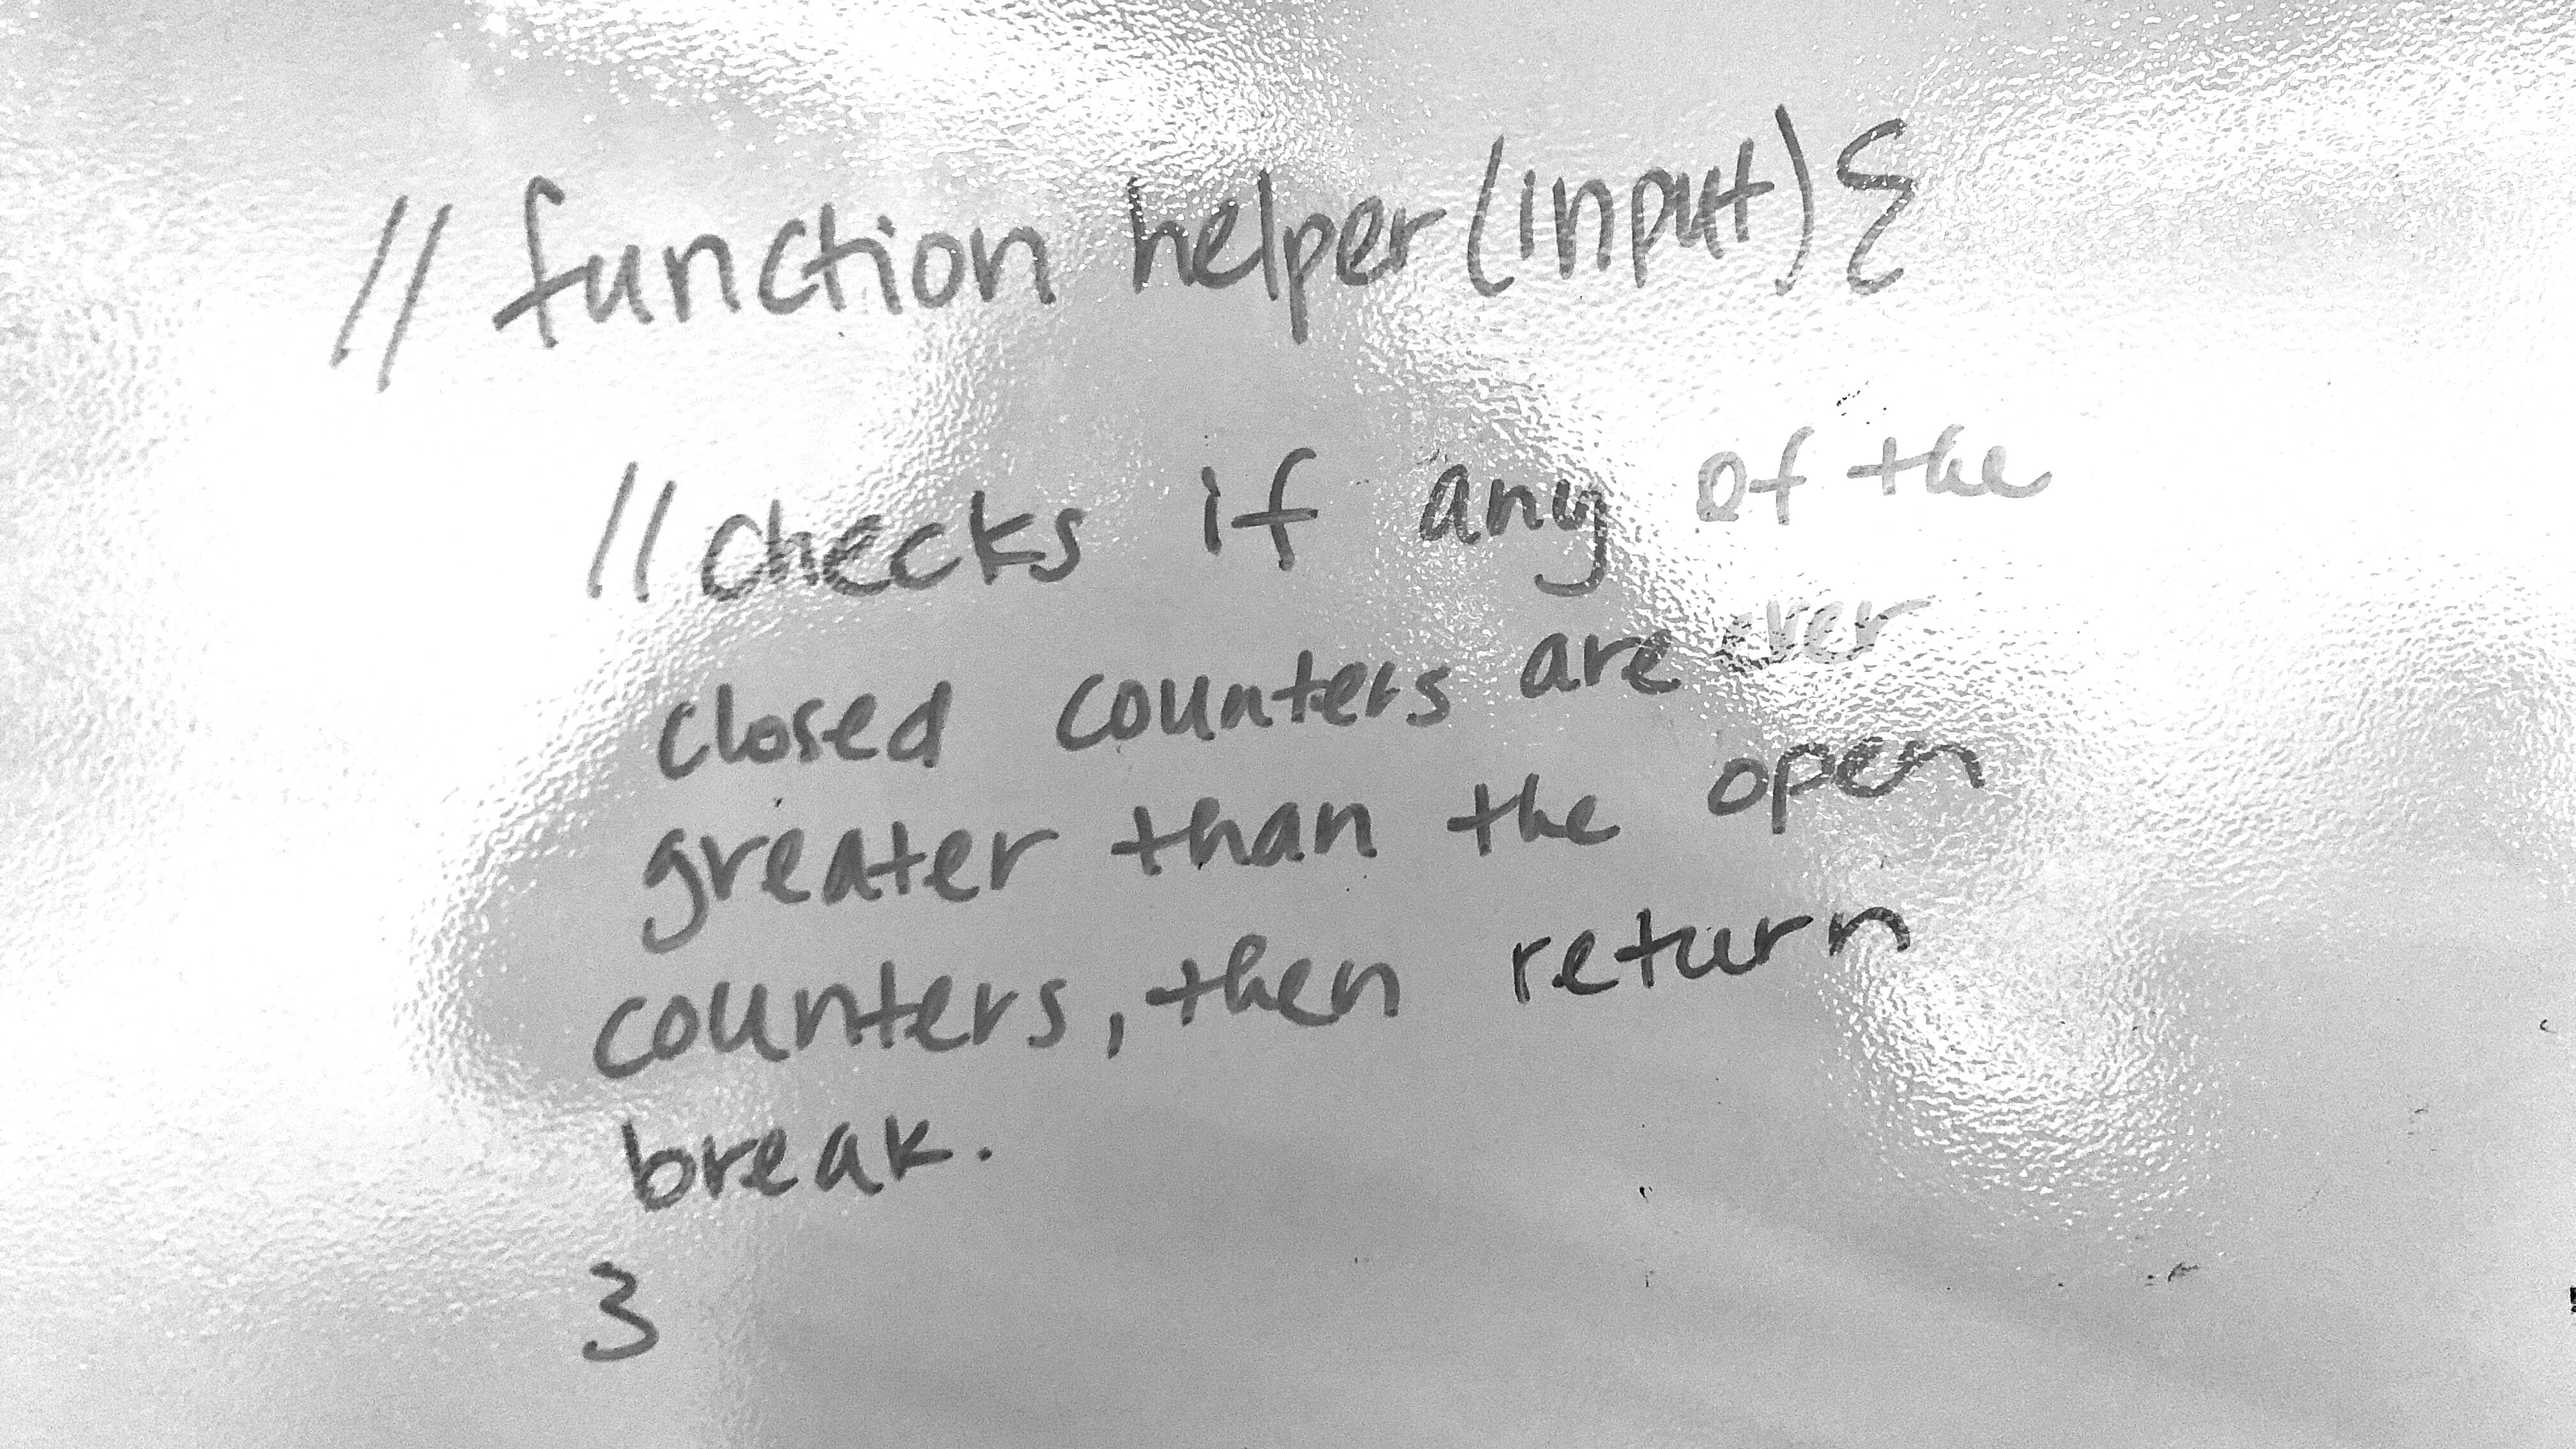 // function helper(input){
// checks if any of the
closed counters are ever
greater than the open
counters, then return
break.
}